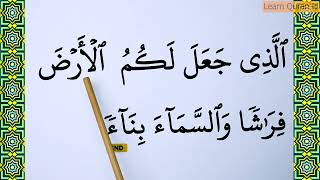 Learn Quran
ٱلَّذِى جَعَلَ لَكُمُ ٱلْأَرْضَ
فِرَٰشًا وَٱلسَّمَآءَ بِنَآءً